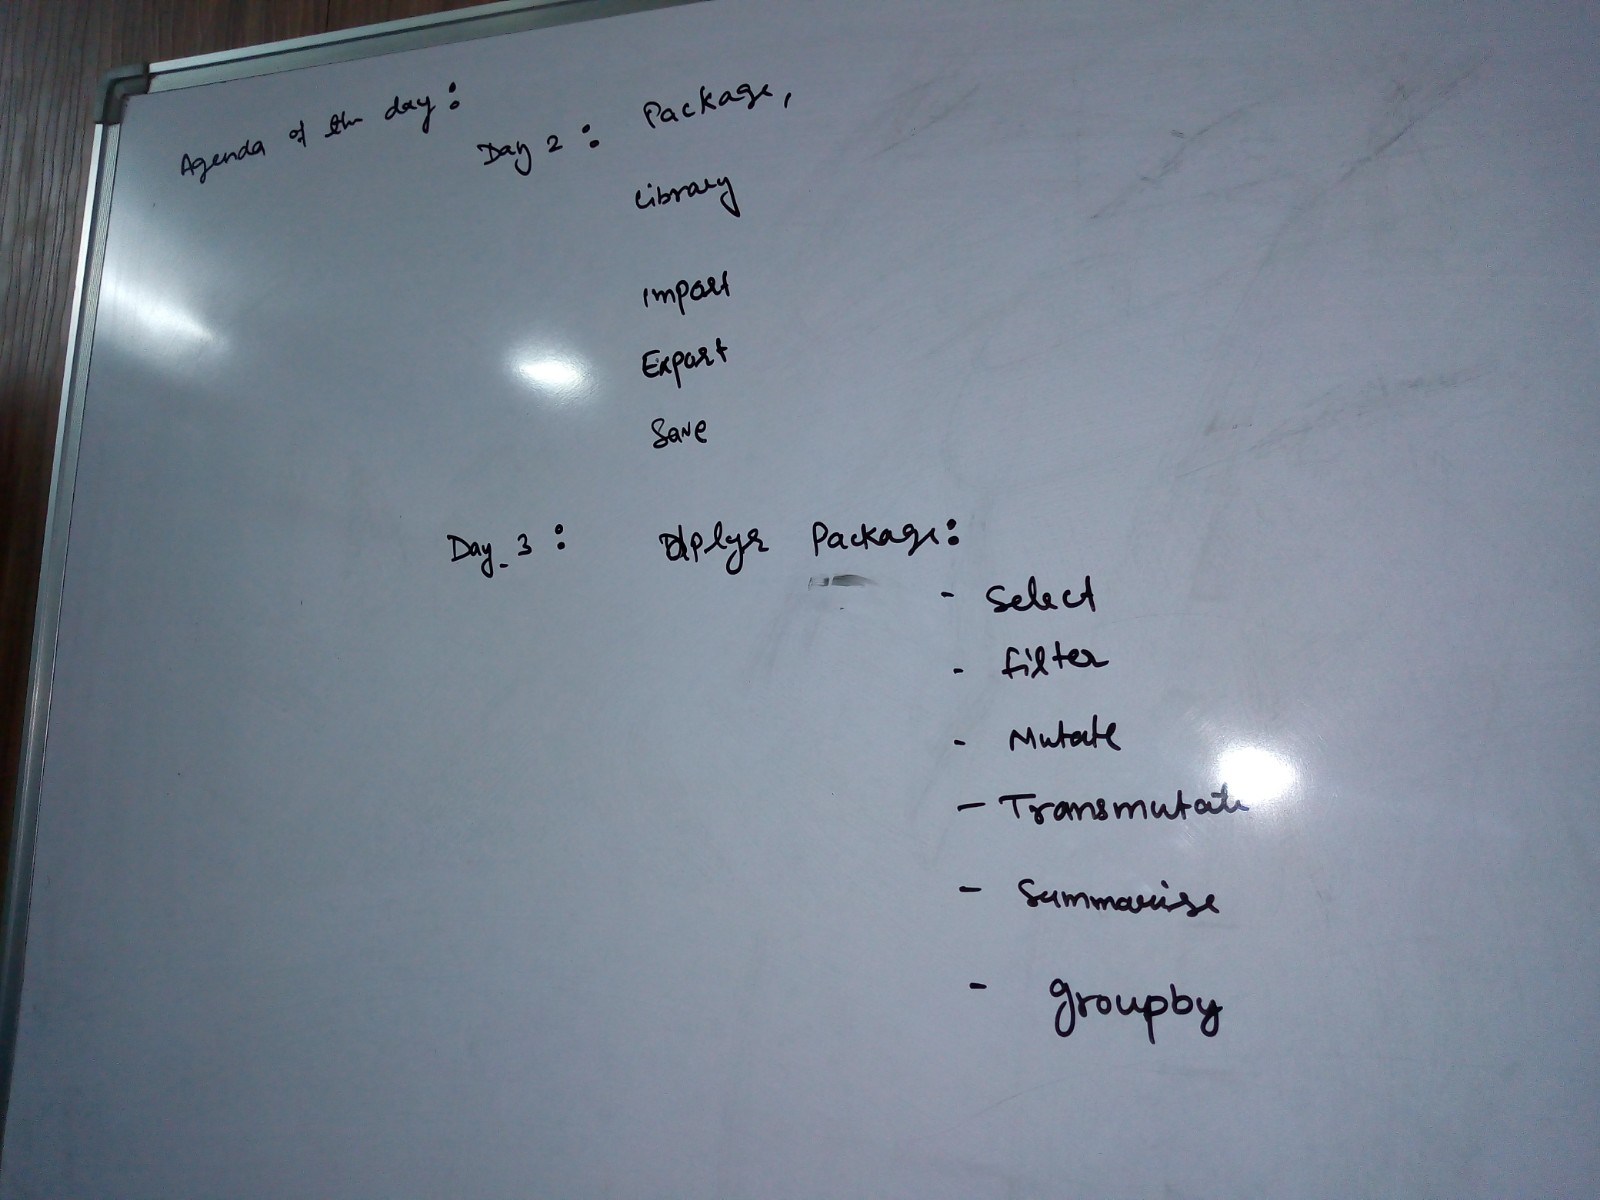 Agenda of the day:
Day 2: Package,
Library
Import
Export
Save
Day_3: dplyr Package:
- Select
- filter
- Mutate
- Transmutate
- Summarise
- groupby